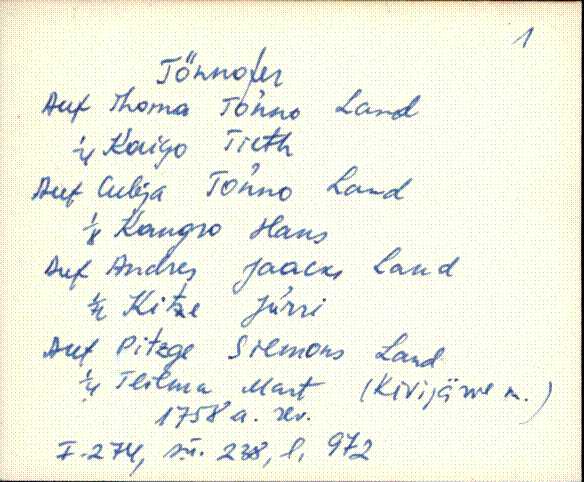 1
Tönnofer
Auf Thoma Tönno Land
1/4 Kaigo Tieth
Auf Cubja Tönno Land
1/8 Kangro Hans
Auf Andres Jaacks Land
1/4 Kitze Jürri
Auf Pitzge Siemons Land
1/4 Mart (Kivijärwe m.)
1758 a. rev.
F. 274, sü. 238, l. 972